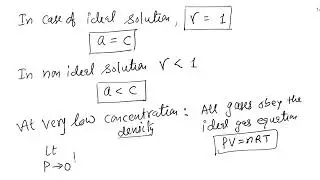 In case of ideal solution, γ = 1
a = c
In non ideal solution γ < 1
a < c
At very low concentration : All gases obey the
density ideal gas equation
Lt PV=nRT
P→0!